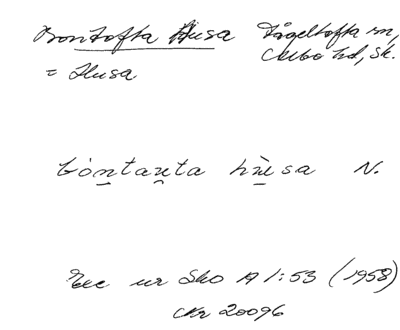 Bontofta Husa Fågeltofta sn,
Albo hd, Sk.
= Husa
bóntaʋta hùsa N.
Exc ur Sko A 1:53 (1958)
acc 20096